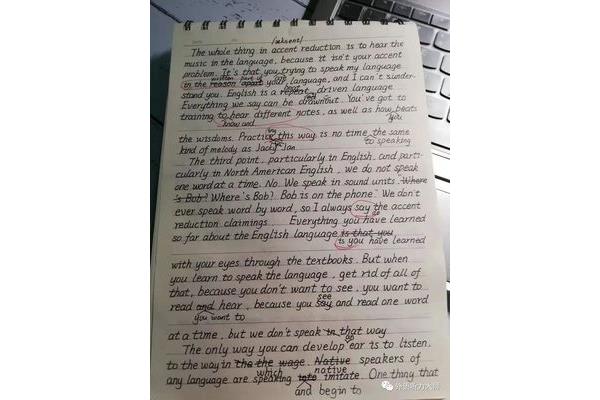 /æksent/
The whole thing in accent reduction is to hear the
music in the language, because it isn't your accent
problem. It's that you trying to speak my language
in the reason apart your language, and I can't under-
stand you. English is a repeat driven language
Everything we say can be drawn out. You've got to
training to hear different notes, as well as how beats
know and
you
the wisdoms. Practice this way is no time the same
to speaking
kind of melody as Jack Jan
The third point, particularly in English, and parti-
cularly in North American English, we do not speak
one word at a time. No. We speak in sound units. Where
's Bob? Where's Bob? Bob is on the phone. We don't
ever speak word by word, so I always say the accent
reduction claimings. Everything you have learned
so far about the English language is that you
is you have learned
with your eyes through the textbooks. But when
you learn to speak the language, get rid of all of
that, because you don't want to see, you want to
see
read and hear, because you say and read one word
you want to
at a time, but we don't speak in that way
The only way you can develop ear is to listen.
to the way in the the wage. Native speakers of
which native
any language are speaking into imitate. One thing that
and begin to
外语听力大师